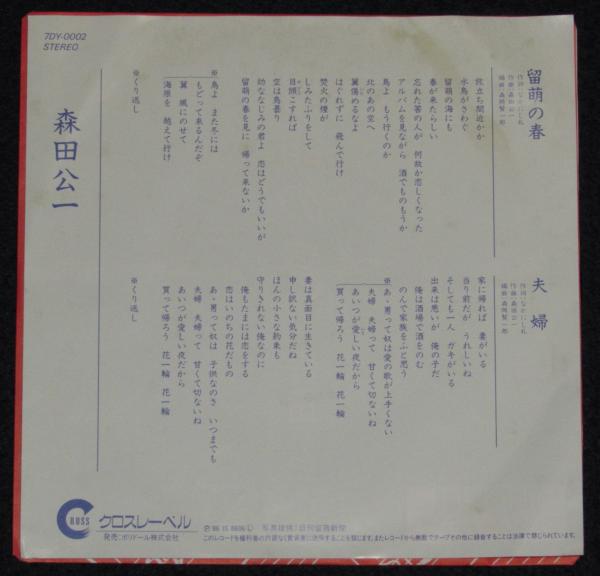 7DY-0002
STEREO
留萌の春
作詞・なかにし礼
作曲・森田公一
編曲・森岡賢一郎
旅立ち間近か
水鳥がさわぐ
留萌の海にも
春が来たらしい
忘れた筈の人が 何故か恋しくなった
アルバムを見ながら 酒でものもうか
鳥よ もう行くのか
北のあの空へ
翼傷めるなよ
はぐれずに 飛んで行け
焚火の煙が
しみたふりをして
目頭こすれば
空は鳥曇り
幼ななじみの君よ 恋はどうでもいいが
留萌の春を見に 帰って来ないか
※鳥よ また冬には
もどって来るんだぞ
翼 風にのせて
海原を 越えて行け
※くり返し
夫婦
作詞・なかにし礼
作曲・森田公一
編曲・森岡賢一郎
家に帰れば 妻がいる
当り前だが うれしいね
そしても一人 ガキがいる
出来は悪いが 俺の子だ
俺は酒場で酒をのむ
のんで家族をふと思う
※あゝ男って奴は愛の歌が上手くない
夫婦 夫婦って 甘くて切ないね
あいつが愛しい夜だから
買って帰ろう 花一輪 花一輪
妻は真面目に生きている
申し訳ない気分だね
ほんの小さな約束も
守りきれない俺なのに
俺もたまには恋をする
恋はいのちの花だもの
あゝ男って奴は 子供なのさ いつまでも
夫婦 夫婦って 甘くて切ないね
あいつが愛しい夜だから
買って帰ろう 花一輪 花一輪
※くり返し
森田公一
CROSS
クロスレーベル
発売:ポリドール株式会社
写真提供:日刊留萌新聞
このレコードを権利者の許諾なく賃貸業に使用することを禁じます。またレコードから無断でテープその他に録音することは法律で禁じられています。